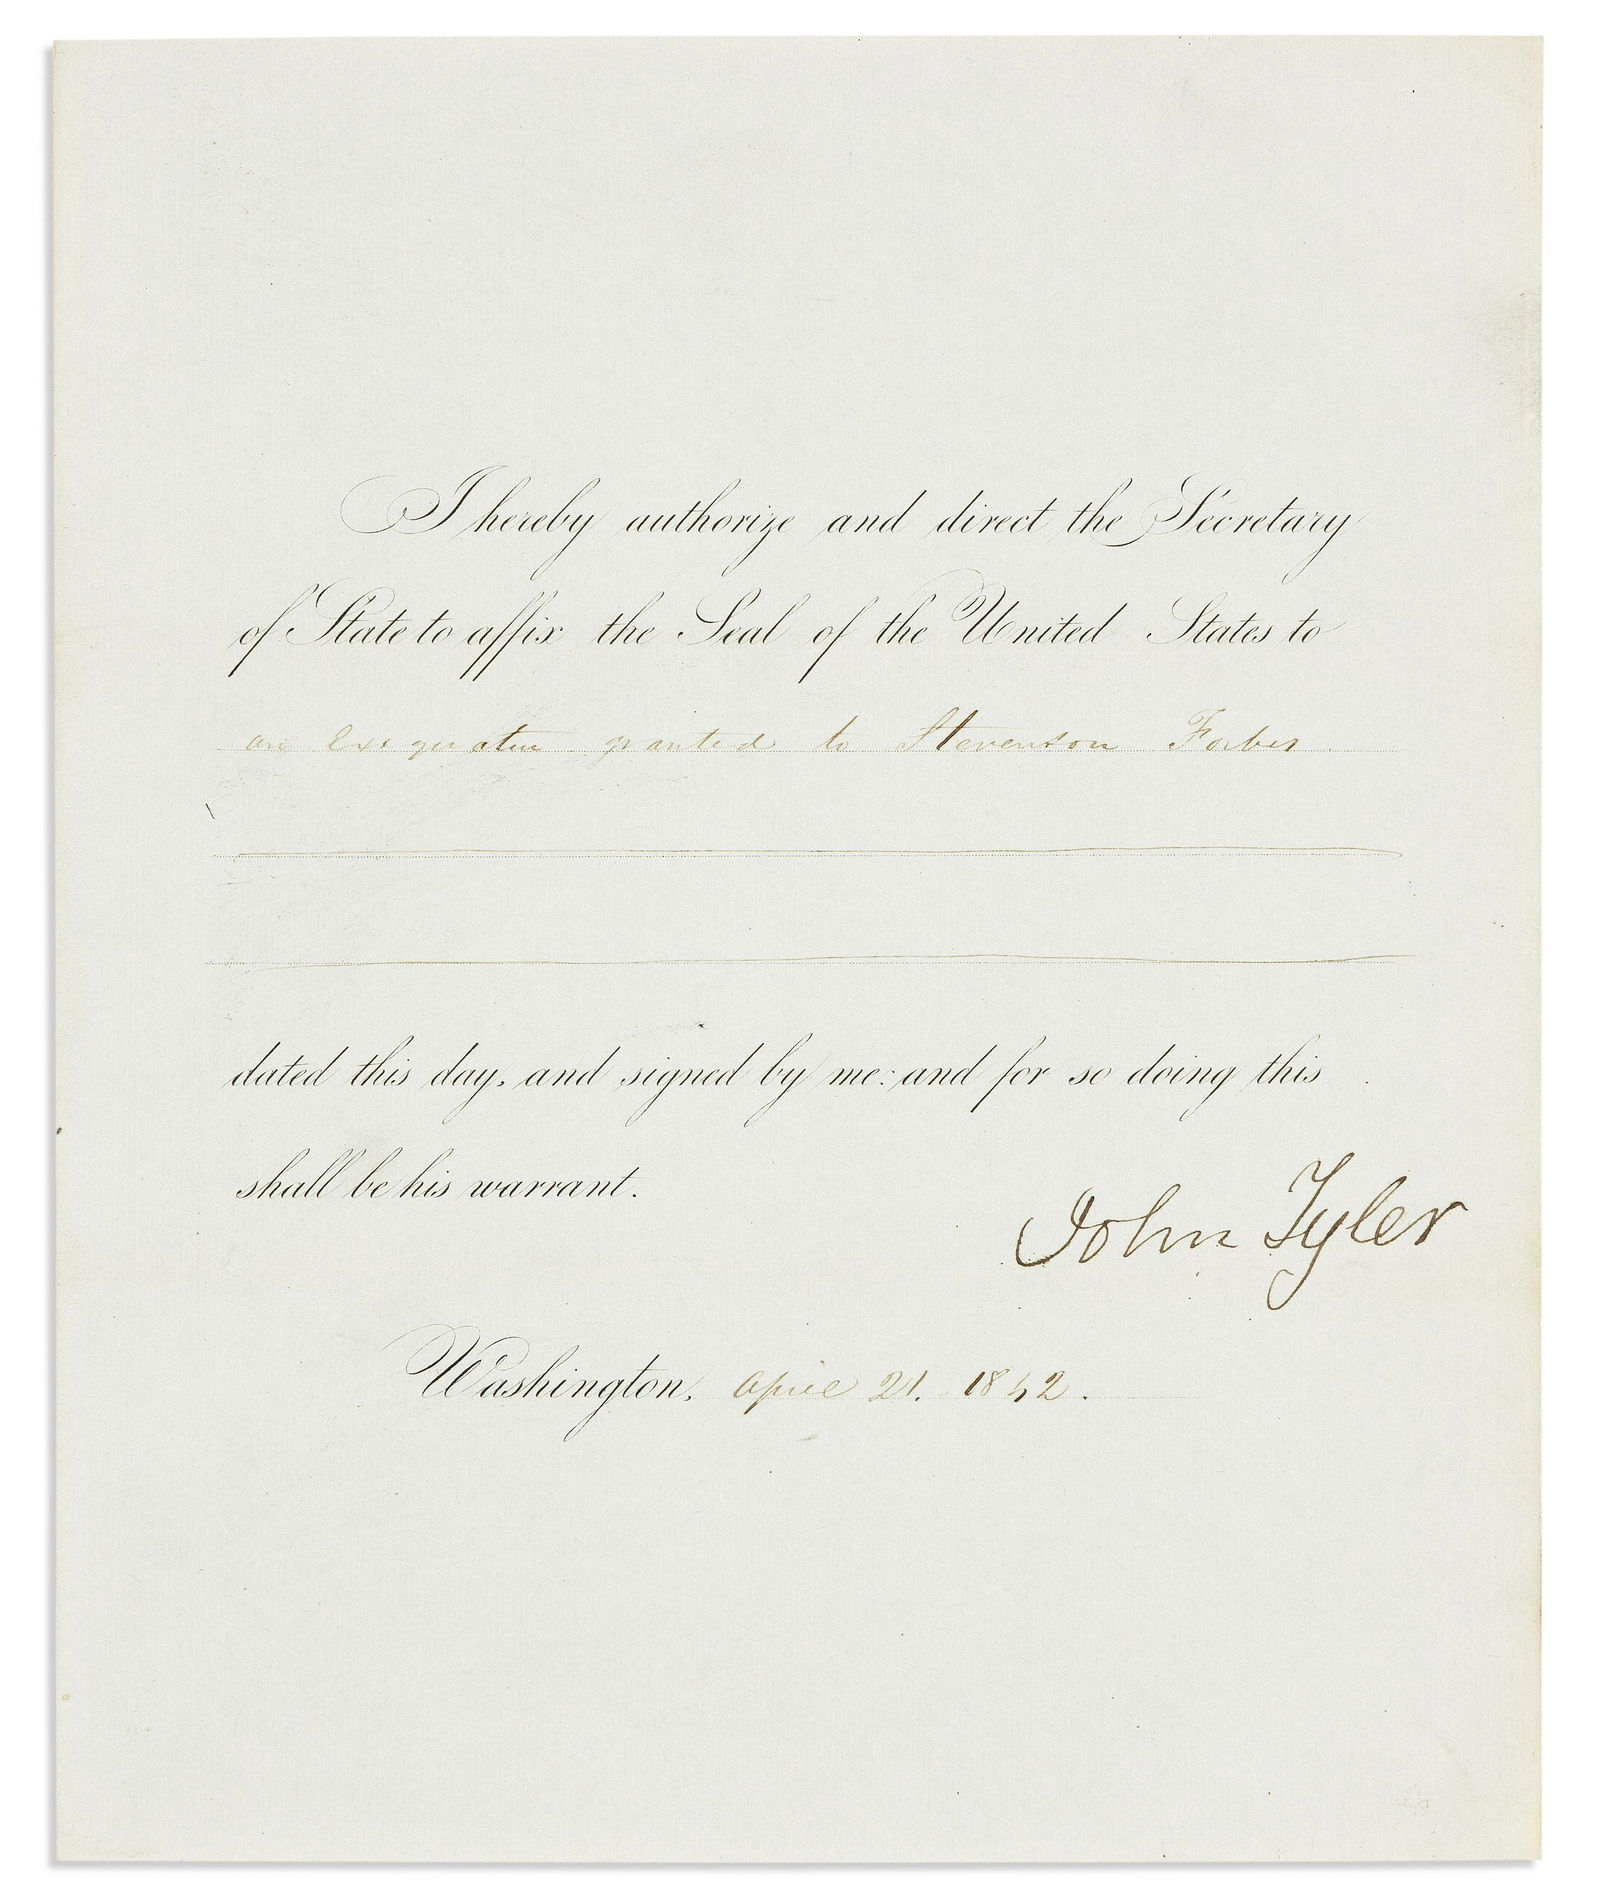 I hereby authorize and direct the Secretary
of State to affix the Seal of the United States to
an Exequatur granted to Stevenson Forbes.
dated this day, and signed by me: and for so doing this
shall be his warrant.
John Tyler
Washington, April 21. 1842.